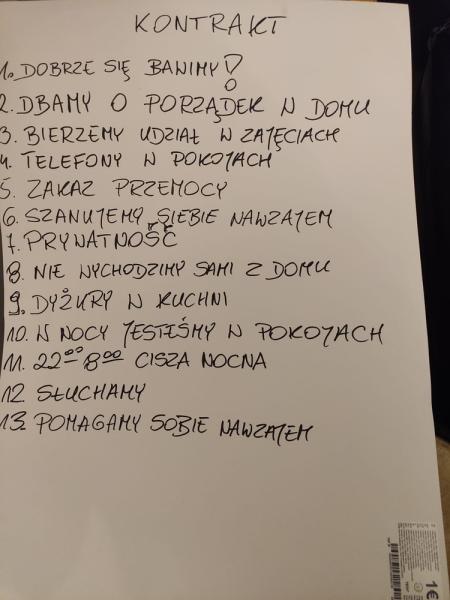 KONTRAKT
1. DOBRZE SIĘ BAWIMY!
2. DBAMY O PORZĄDEK W DOMU
3. BIERZEMY UDZIAŁ W ZAJĘCIACH
4. TELEFONY W POKOJACH
5. ZAKAZ PRZEMOCY
6. SZANUJEMY SIEBIE NAWZAJEM
7. PRYWATNOŚĆ
8. NIE WYCHODZIMY SAMI Z DOMU
9. DYŻURY W KUCHNI
10. W NOCY JESTEŚMY W POKOJACH
11. 22⁰⁰-8⁰⁰ CISZA NOCNA
12. SŁUCHAMY
13. POMAGAMY SOBIE NAWZAJEM
1€